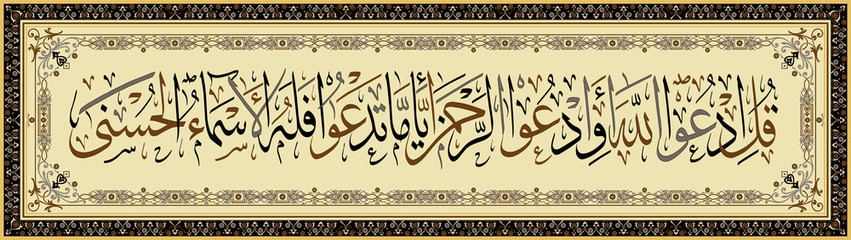 قُلِ ادْعُوا اللَّهَ أَوِ ادْعُوا الرَّحْمَنَ أَيًّا مَا تَدْعُوا فَلَهُ الْأَسْمَاءُ الْحُسْنَى